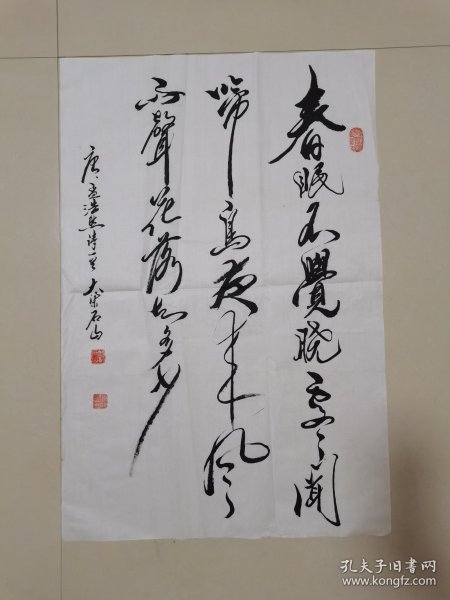 春眠不覺曉處處聞
啼鳥夜来風
雨聲花落知多少
唐孟浩然诗一首 石山
孔夫子旧书网
www.kongfz.com